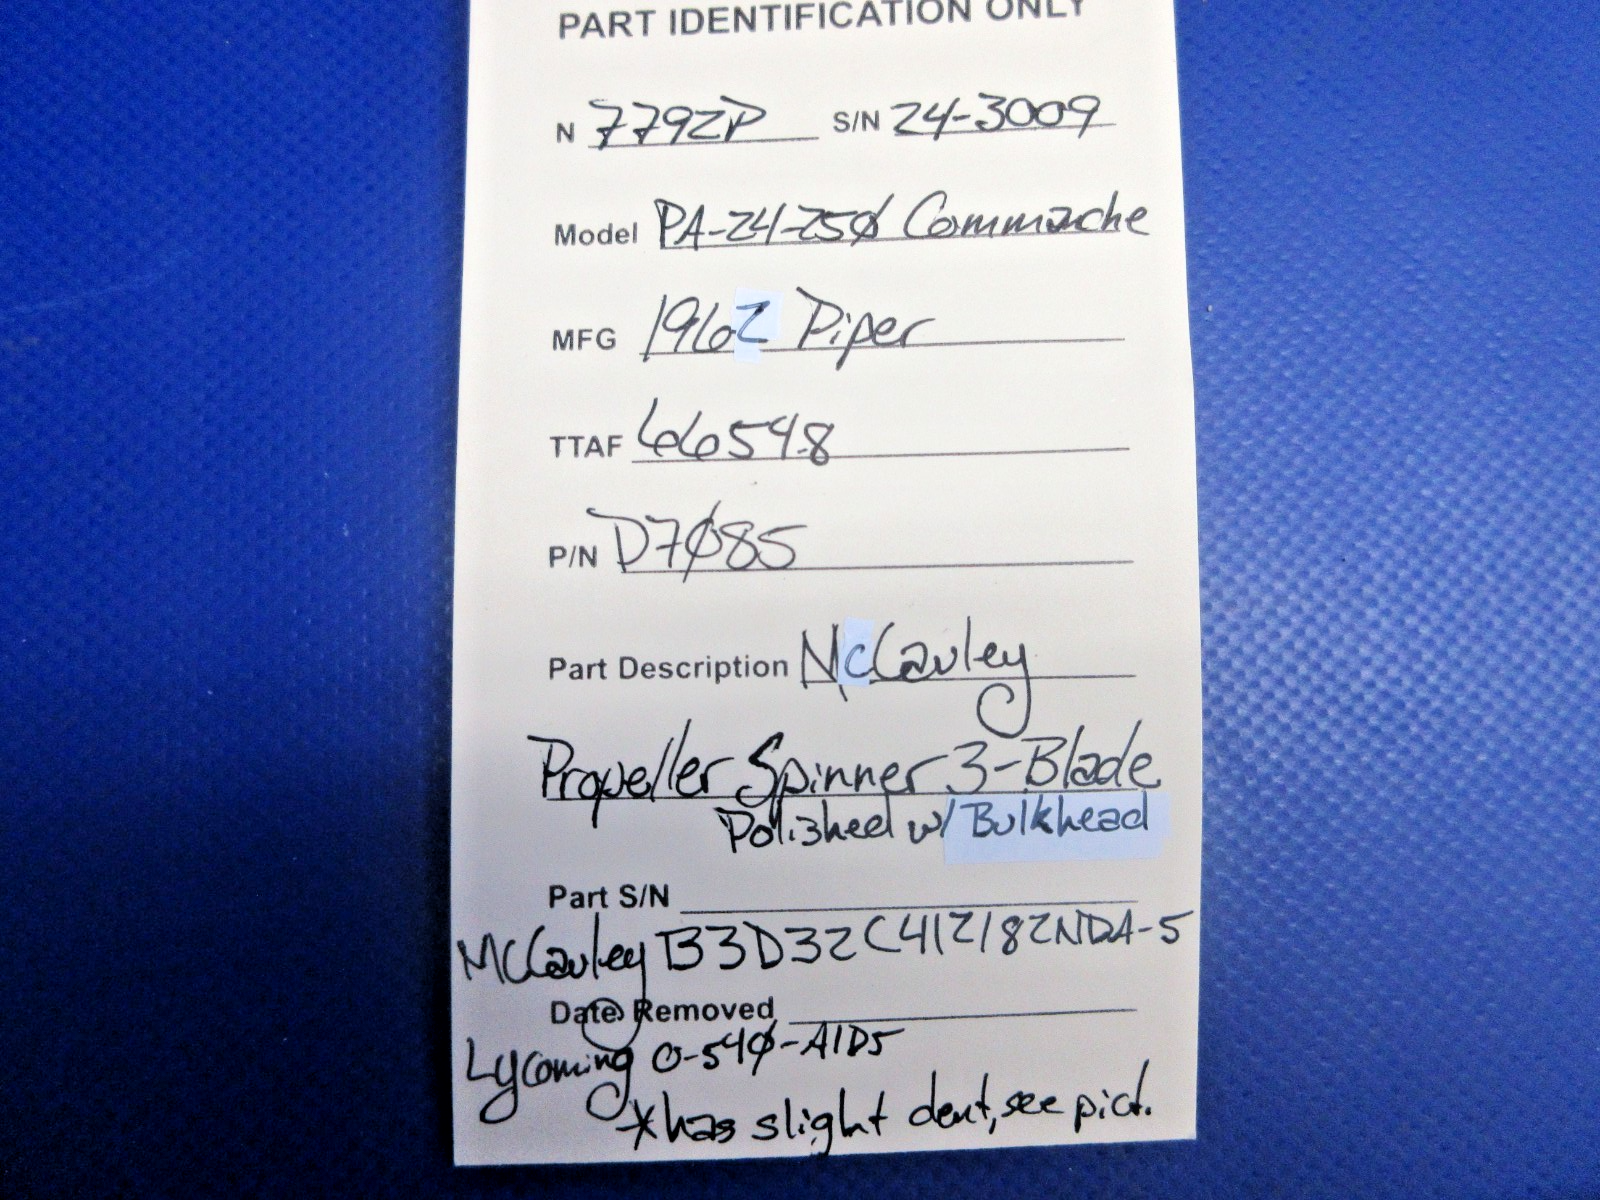 PART IDENTIFICATION ONLY
N 7792P S/N 24-3009
Model PA-24-25Ø Commanche
MFG 1962 Piper
TTAF 6654.8
P/N D7Ø85
Part Description McCauley
Propeller Spinner 3-Blade
Polished w/ Bulkhead
Part S/N
McCauley B3D32C412/82NDA-5
Date Removed
Lycoming O-54Ø-A1D5
*has slight dent, see pict.